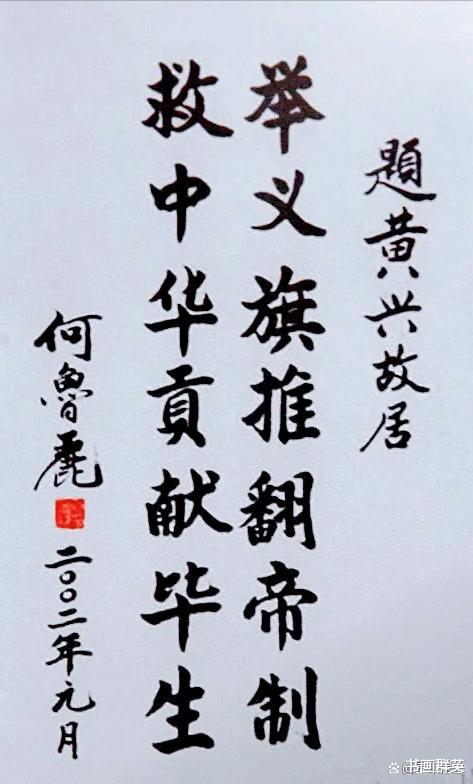 題黄兴故居
举义旗推翻帝制
救中华貢献毕生
何魯麗
二〇〇二年元月
书画群英